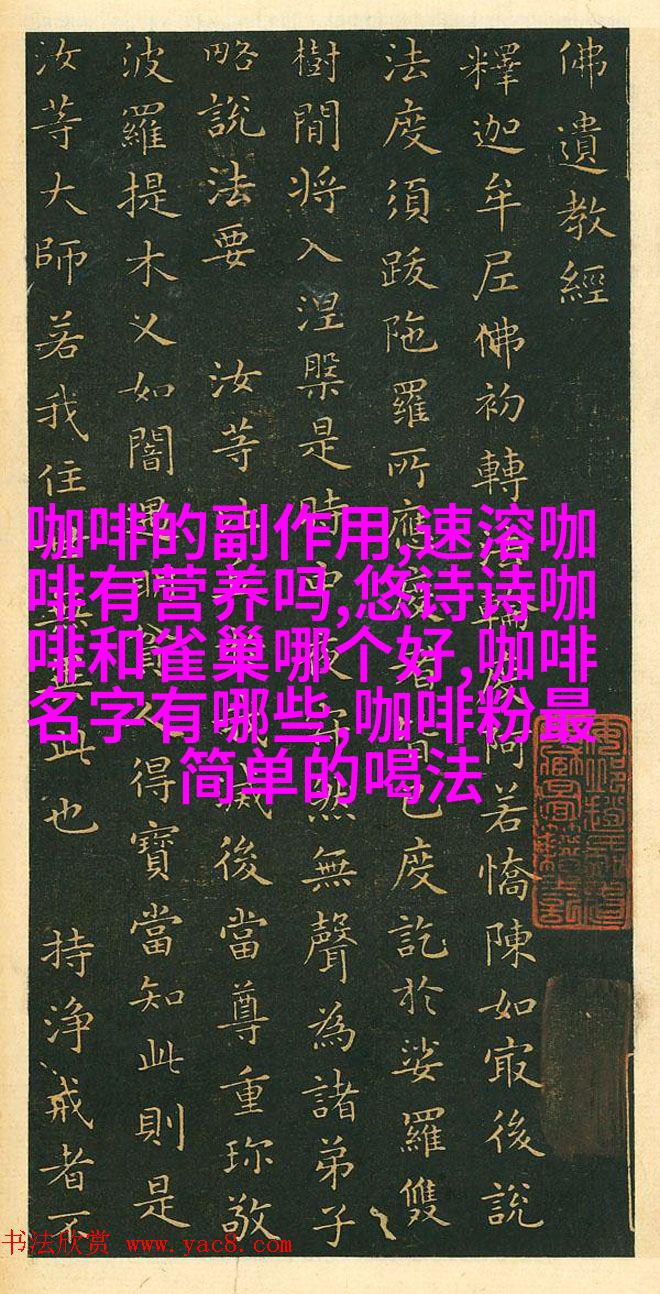 佛遺教經
釋迦牟尼佛初轉法輪度阿若憍陳如冣後說
法度須跋陁羅所應度者皆已度訖於娑羅雙
樹間将入涅槃是時中夜寂然無聲為諸弟子
略說法要 汝等比丘於我滅後當尊重珎敬
波羅提木叉如闇遇明貧人得寶當知此則是
汝等大師若我住世無異此也 持浄戒者不
咖啡的副作用,速溶咖
啡有营养吗,悠诗诗咖
啡和雀巢哪个好,咖啡
名字有哪些,咖啡粉最
简单的喝法
书法欣赏 www.yac8.com